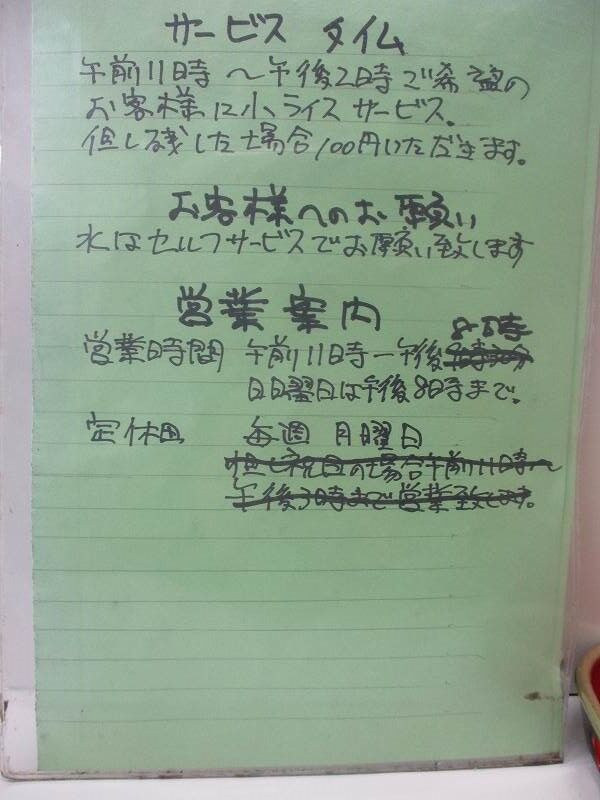 サービス タイム
午前11時～午後2時ご希望の
お客様に小ライスサービス。
但し残した場合100円いただきます。
お客様へのお願い
水はセルフサービスでお願い致します
営業案内
8時
営業時間 午前11時ー午後
日曜日は午後8時まで。
定休日 毎週 月曜日
但し祝日の場合午前11時～
午後3時まで営業致します。